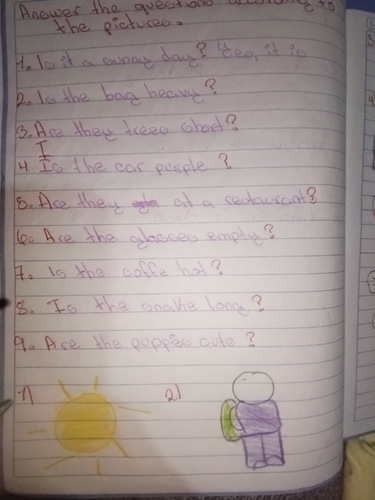 Answer the questions according to
the pictures.
1. Is it a sunny day? Yes, it is
2. Is the bag heavy?
3. Are they trees short?
I
4 Is the car purple ?
5. Are they at a restaurant?
6. Are the glasses empty?
7. Is the coffe hot?
8. Is the snake long?
9. Are the puppies cute?
1)
2)